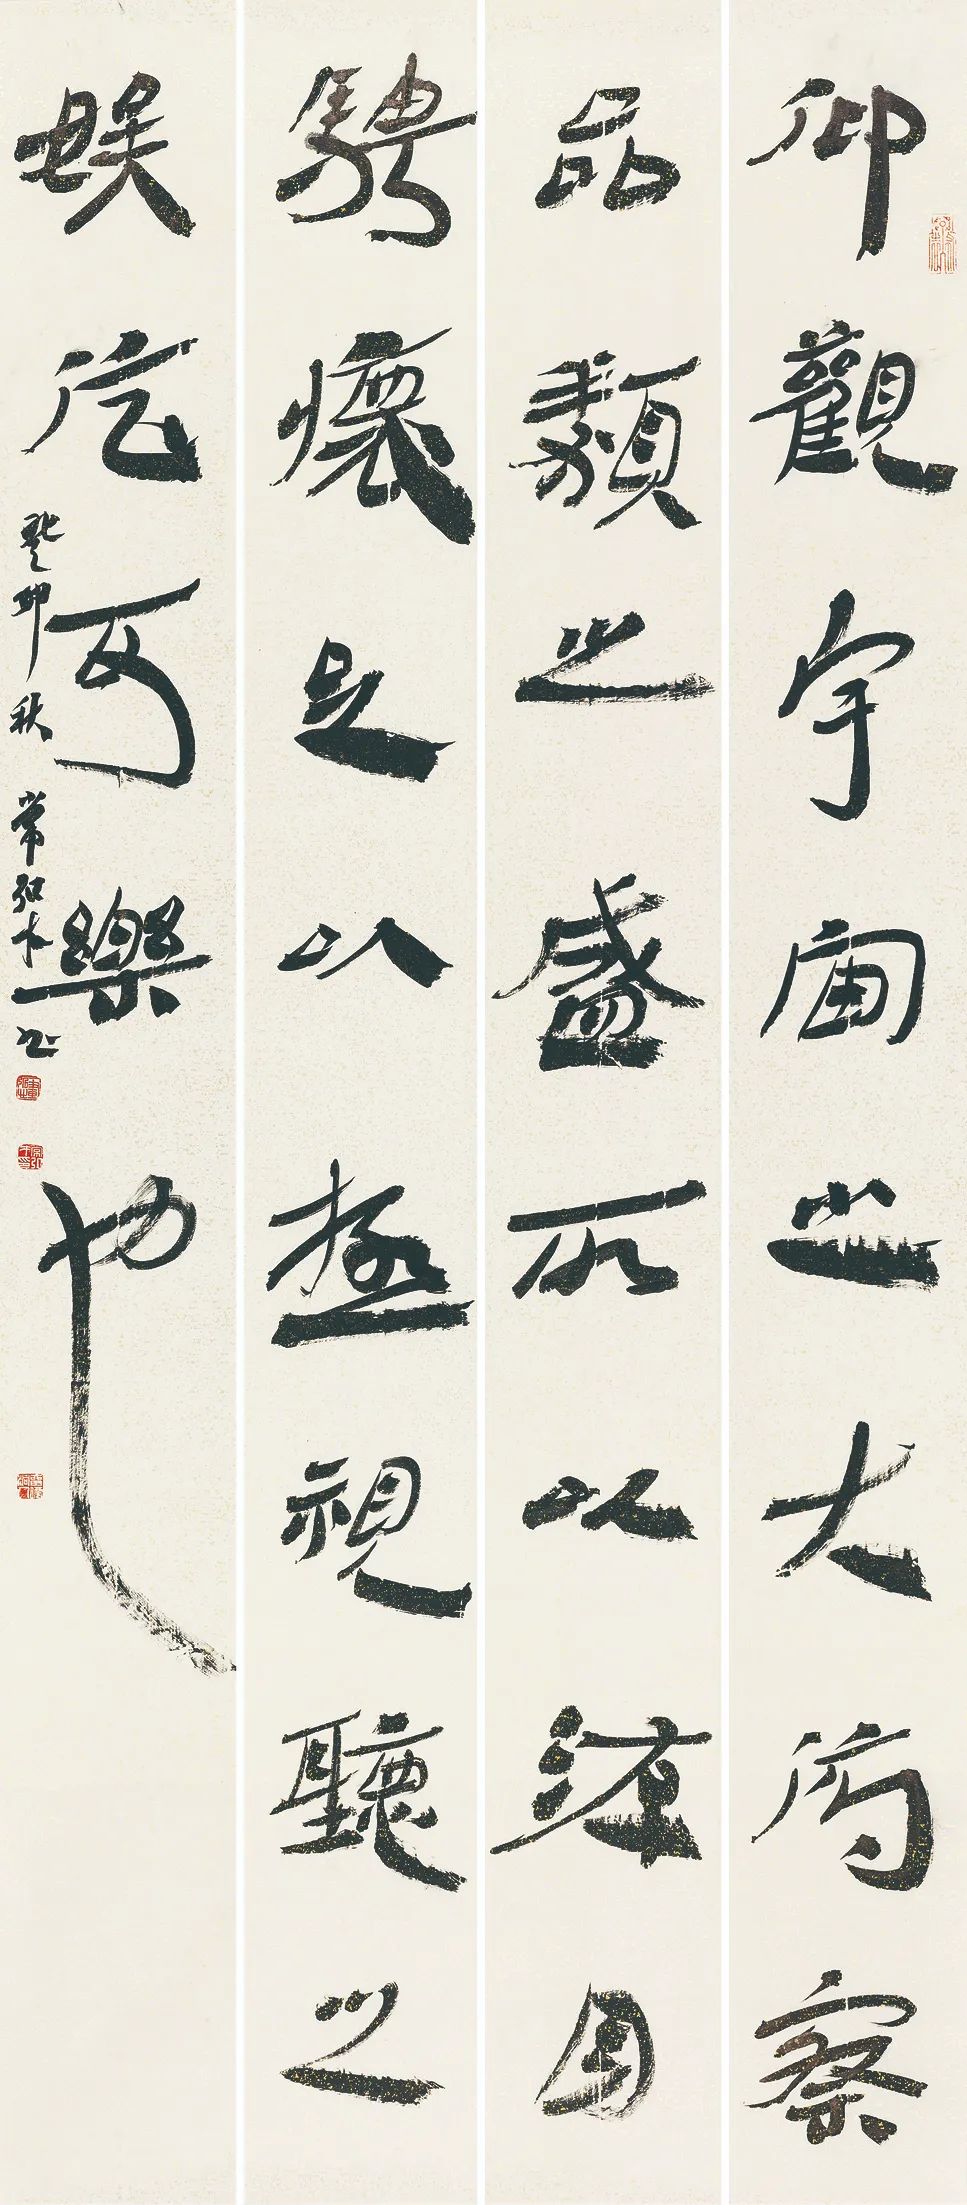 仰觀宇宙之大俯察
品類之盛所以游目
騁懷足以極視聽之
娱信可樂也
癸卯秋 常弘书